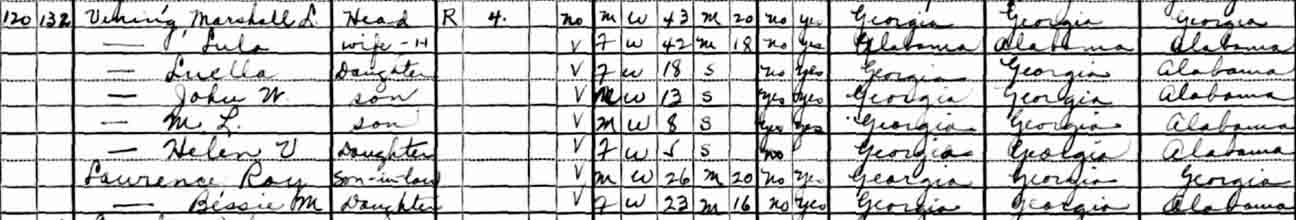 120 132 Vining, Marshall L. Head R 4. no M W 43 M 20 no yes Georgia Georgia Georgia
— Lula wife-H V F W 42 M 18 no yes Alabama Alabama Alabama
— Luella Daughter V F W 18 S no yes Georgia Georgia Alabama
— John W. son V M W 13 S yes yes Georgia Georgia Alabama
— M. L. son V M W 8 S yes yes Georgia Georgia Alabama
— Helen V Daughter V F W 5 S no Georgia Georgia Alabama
Lawrence Roy Son-in-law V M W 26 M 20 no yes Georgia Georgia Georgia
— Bessie M Daughter V F W 23 M 16 no yes Georgia Georgia Alabama